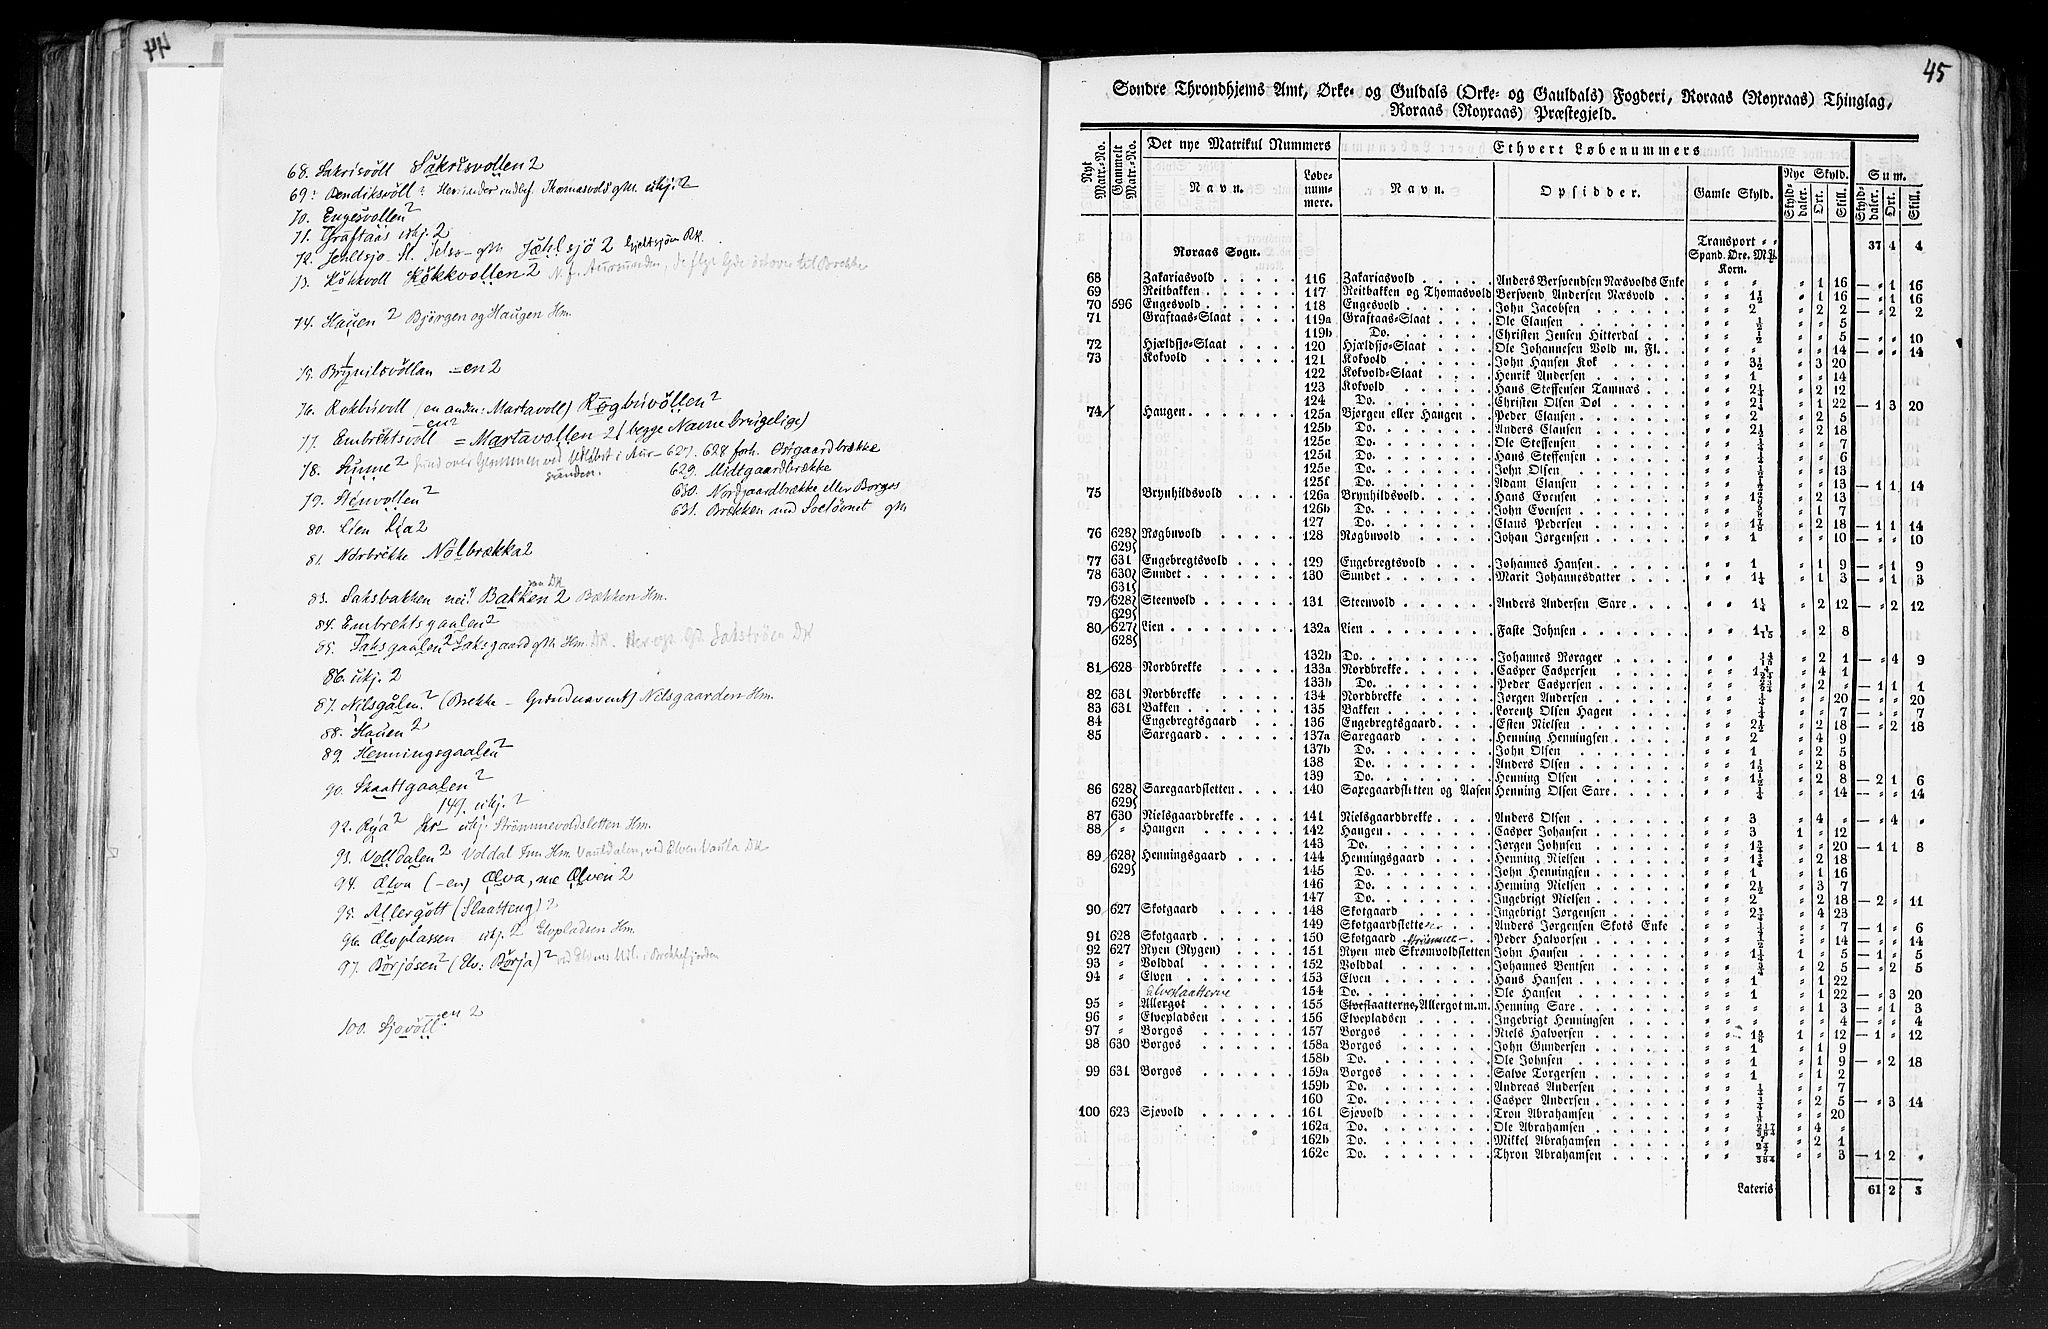 44
68. Sakrisvöll Sakrisvollen 2
70. Engesvollen 2
71. Graftaas ubj. 2
73. Kökkvoll Kökkvollen 2
74. Hauen 2 Bjørgen og Haugen Hm.
75. Brynilsvöllan =en 2
76. Rokbuvoll (en anden: Martavoll) Rogbuvöllen 2
77. Embrehtsvoll = Martavollen 2 (begge Navne brugelige)
78. Sunne 2
627. 628 forh. Østgaardbrække
629. Midtgaardbrække
79. Stenvollen 2
630. Nordgaardbrække eller Borgos
631. Brækken med Soelövnet gml
80. Lien Lia 2
81. Norbrekke Nolbrækka 2
83. Saksbakken nei! Bakken 2 Bækken Hm.
84. Embrehtsgaalen 2
85. Saksgaalen 2 Saksgaard gml Hm.
86. ubj. 2
87. Nilsgålen 2 (Brekke - Grændnavnet) Nilsgaarden Hm.
88. Hauen 2
89. Henningsgaalen 2
90. Skaattgaalen 2
149. ubj. 2
92. Rya 2 Str- ubj. Strömmevoldsletten Hm.
93. Volldalen 2 Voldal Fnn. Hm. Vauldalen, ved Elven Vaula DK
94. Ælva (-en) Ælva, me Ælven 2
95. Allergött (Slaatteng) 2
96. Ælvplassen ubj. 2 Elvpladsen Hm.
97. Börjösen 2 (Elv: Börja) 2
100. Sjøvöll en 2
45
Søndre Throndhjems Amt, Ørke- og Guldals (Orke- og Gauldals) Fogderi, Røraas (Røyraas) Thinglag,
Røraas (Røyraas) Præstegjeld.
Nyt Matr.-No. Gammelt Matr.-No. Det nye Matrikul Nummers Ethvert Løbenummers
Navn. Løbenummere. Navn. Opsidder. Gamle Skyld. Nye Skyld. Sum.
Skylddaler. Ort. Skill. Skylddaler. Ort. Skill.
Røraas Sogn. Transport " " 37 4 4
Spand. Øre. M℔.
Korn.
68 Zakariasvold 116 Zakariasvold Anders Bersvendsen Næsvolds Enke " " " " 1 16 — " 1 16
69 Reitbakken 117 Reitbakken og Thomasvold Bersvend Andersen Næsvold " " 1½ " 1 16 — " 1 16
70 596 Engesvold 118 Engesvold John Jacobsen " " 2 " 2 2 — " 2 2
71 Graftaas-Slaat 119a Graftaas-Slaat Ole Clausen " " ½ " " 5
119b Do. Christen Jensen Hitterdal " " ½ " " 5 — " " 10
72 Hjældsjø-Slaat 120 Hjældsjø-Slaat Ole Johannesen Vold m. Fl. " " " " " 14 — " " 14
73 Kokvold 121 Kokvold John Hansen Kok " " 3½ " 3 20
122 Kokvold-Slaat Henrik Andersen " " 1 " " 14
123 Kokvold Hans Steffensen Tamnæs " " 2¼ " 2 12
124 Do. Christen Olsen Døl " " 2¼ " 1 22 — 1 3 20
74 Haugen 125a Bjørgen eller Haugen Peder Clausen " " 2 " 2 5
125b Do. Anders Clausen " " 2½ " 2 18
125c Do. Ole Steffensen " " ¼ " " 7
125d Do. Hans Steffensen " " ¼ " " 6
125e Do. John Olsen " " ½ " " 13
125f Do. Adam Clausen " " ½ " " 13 — 1 1 14
75 Brynhildsvold 126a Brynhildsvold Hans Evensen " " " 2 13
126b Do. John Evensen " " ⅝ " 1 7
127 Do. Claus Pedersen " " 1⅞ " 2 18 — 1 1 14
76 628 629 Røgbuvold 128 Røgbuvold Johan Jørgensen " " 1 " " 10 — " " 10
77 631 Engebregtsvold 129 Engebregtsvold Johannes Hansen " " 1 " 1 9 — " 1 9
78 630 631 Sundet 130 Sundet Marit Johannesdatter " " 1¼ " 1 3 — " 1 3
79 628 629 Steenvold 131 Steenvold Anders Andersen Saxe " " 1¼ " 2 12 — " 2 12
80 627 628 Lien 132a Lien Faste Johnsen " " 1 1/15 " 2 8
132b Do. Johannes Rorager " " 14/15 " 2 1 — " 4 9
81 628 Nordbrekke 133a Nordbrekke Casper Caspersen " " " 4 1
133b Do. Peder Caspersen " " " 2 " — 1 1 1
82 631 Nordbrekke 134 Nordbrekke Jørgen Andersen " " " " 20 — " " 20
83 631 Bakken 135 Bakken Lorentz Olsen Hagen " " ¼ " " 7 — " " 7
84 Engebregtsgaard 136 Engebregtsgaard Esten Nielsen " " 2½ " 2 18 — " 2 18
85 Saxegaard 137a Saxegaard Henning Henningsen " " 2 " 4 9
137b Do. John Olsen " " 1 " 2 5
138 Do. Anders Olsen " " 1½ " 2 8
139 Do. Henning Olsen " " 1½ " 2 8 — 2 1 6
86 628 629 Saxegaardsletten 140 Saxegaardsletten og Aasen Henning Olsen Saxe " " ¼ " " 14 — " " 14
87 630 Nielsgaardbrekke 141 Nielsgaardbrekke Anders Olsen " " 3 " 4 " — " 4 "
88 " Haugen 142 Haugen Casper Johansen " " 3 1 " 12
143 Do. Jørgen Johnsen " " 1¾ " " 20 — 1 1 8
89 628 629 Henningsgaard 144 Henningsgaard Henning Nielsen " " 1¾ " 2 18
145 Do. John Henningsen " " 1 " 1 16
146 Do. Henning Nielsen " " 2½ " 3 7
147 Do. Ingebrigt Nielsen " " 2 " 2 18 — 2 " 11
90 627 Skotgaard 148 Skotgaard Ingebrigt Jørgensen " " 2¾ " 4 23
149 Skotgaardsletten Anders Jørgensen Skots Enke " " ¼ " " 7 — 1 " 6
91 628 Skotgaard 150 Skotgaard Strömmen- Peder Halvorsen " " ½ " " 14 — " " 14
92 627 Ryen (Rygen) 151 Ryen med Strømvoldsletten John Hansen " " 1¼ 1 " 5 — 1 " 5
93 " Volddal 152 Volddal Johannes Bentsen " " ¾ " 2 5 — " 2 5
94 " Elven 153 Elven Hans Hansen " " 1 " 1 22
Elveslaatterne
154 Do. Ole Hansen " " 1 " 1 22 — " 3 20
95 " Allergot 155 Elveslaatterne, Allergot m.m. Henning Saxe " " " " 1 3 — " 1 3
96 " Elvepladsen 156 Elvepladsen Ingebrigt Henningsen " " " " " 4 — " " 4
97 " Borgos 157 Borgos Niels Halvorsen " " 1⅝ 1 " 12 — 1 " 12
98 630 Borgos 158a Borgos John Gundersen " " 1 " 1 9
158b Do. Ole Johnsen " " 1 " 1 9 — " 2 18
99 631 Borgos 159a Borgos Salve Torgersen " " 1 " 1 2
159b Do. Andreas Andersen " " ¼ " " 7
160 Do. Casper Andersen " " ¾ " 2 5 — " 3 14
100 623 Sjøvold 161 Sjøvold Tron Abrahamsen " " ⅛ " " 20
162a Do. Ole Abrahamsen " " " 4 "
162b Do. Mikkel Abrahamsen " " " 2 1
162c Do. Thron Abrahamsen " " " " 3 — 1 2 "
Lateris 61 2 3